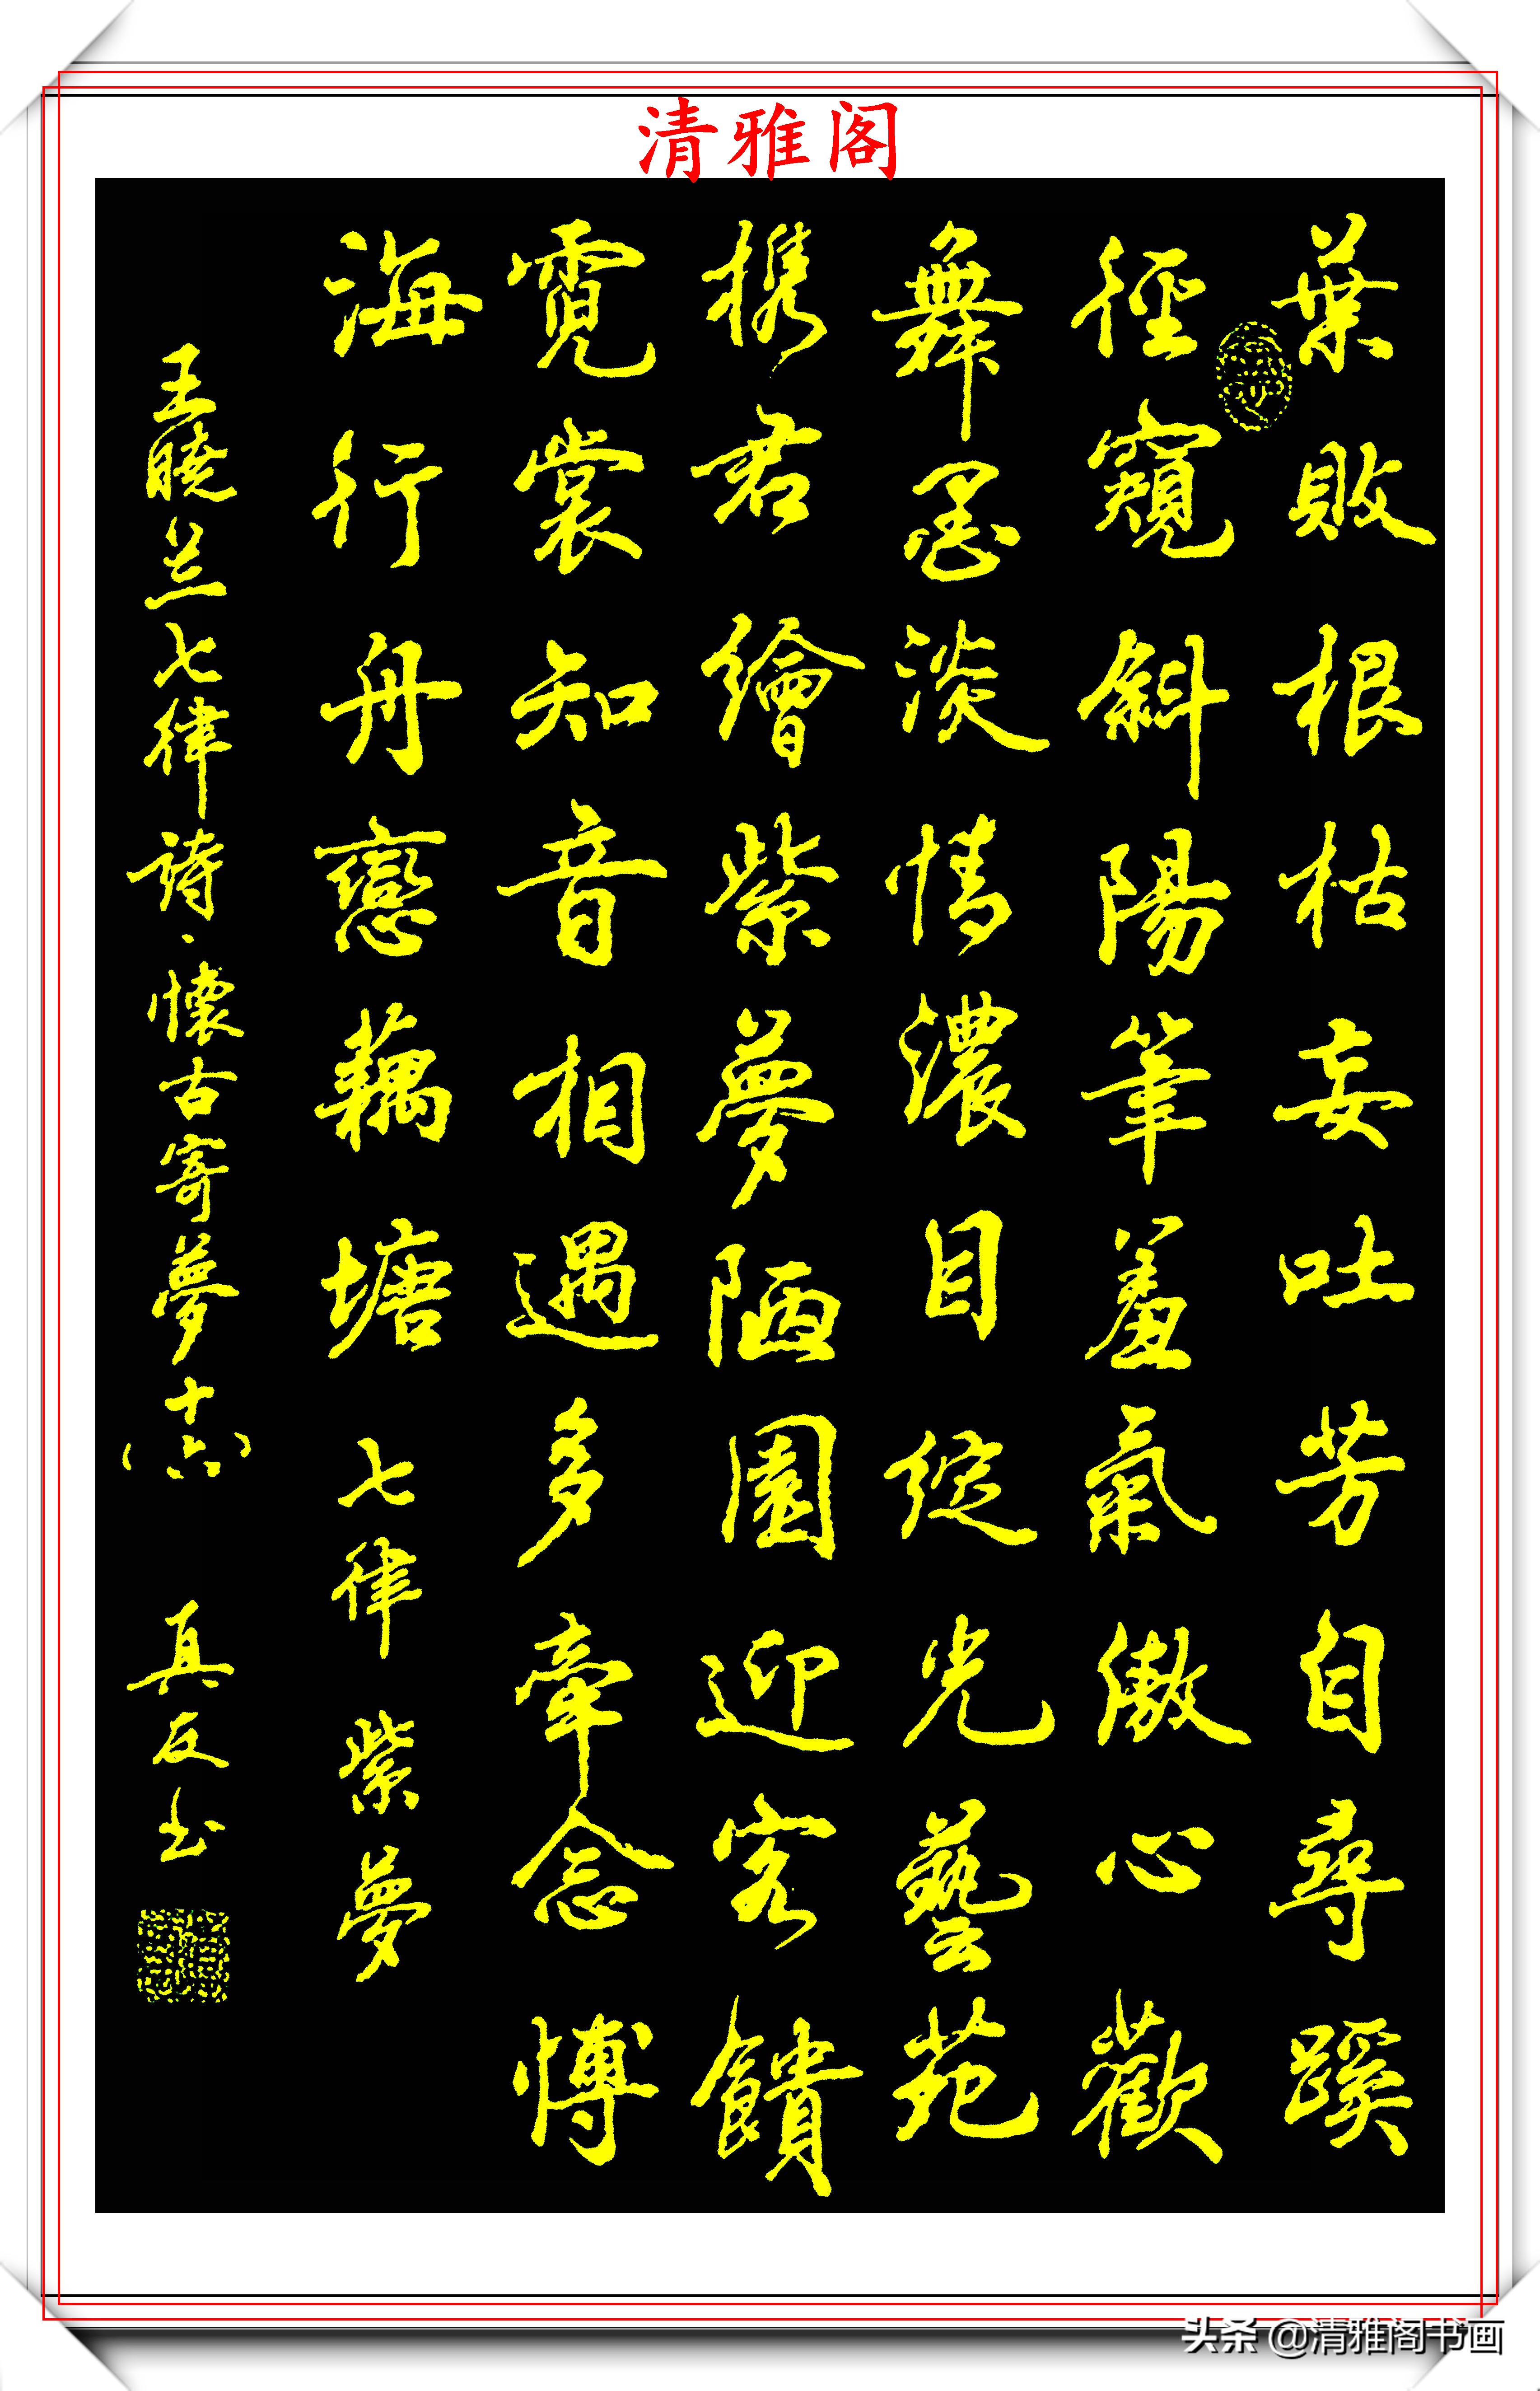 清雅阁
葉敗根枯妄吐芳自尋蹊
徑窺斜陽筆羞氣傲心歡
舞墨淡情濃目綻光藝苑
携君繪紫夢陋園迎客饋
霓裳知音相遇多牽念愽
海行舟戀藕塘 七律 紫夢
王曉兰七律詩、懷古寄夢十(六) 真反书
头条 @清雅阁书画